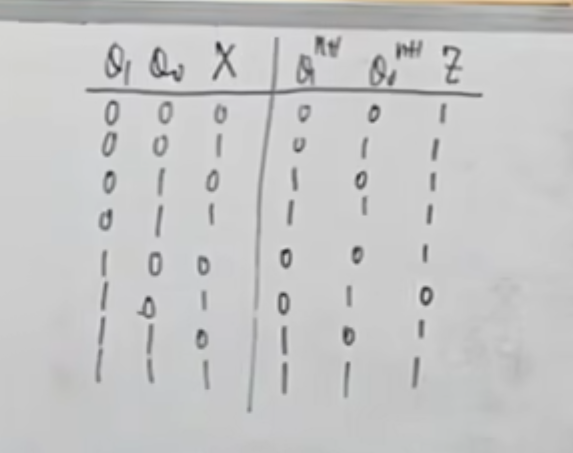 Q₁ Q₀ X | Q₁ⁿ⁺¹ Q₀ⁿ⁺¹ Z
0 0 0 | 0 0 1
0 0 1 | 0 1 1
0 1 0 | 1 0 1
0 1 1 | 1 1 1
1 0 0 | 0 0 1
1 0 1 | 0 1 0
1 1 0 | 1 0 1
1 1 1 | 1 1 1